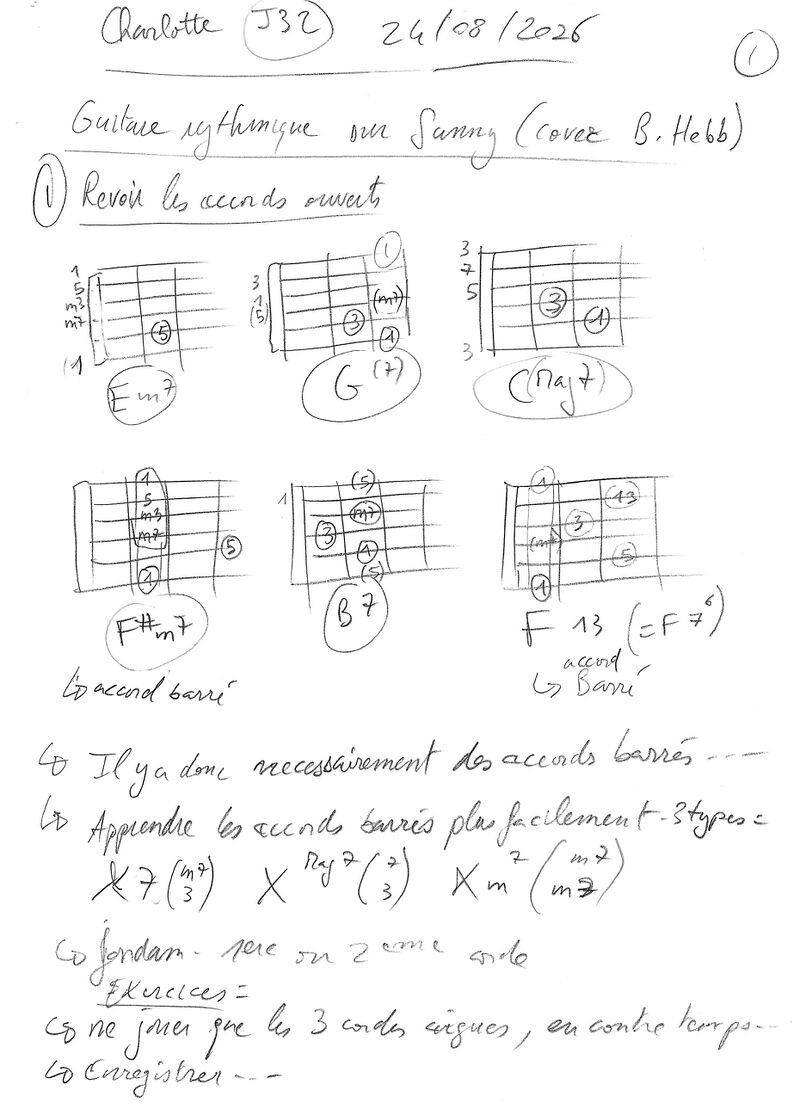 Charlotte J32 24/08/2026
1
Guitare rythmique sur Sunny (cover B. Hebb)
1 Revoir les accords ouverts
1
5
m3
m7
(1
5
Em7
3
1
(5)
1
(m7)
3
1
G(7)
3
7
5
3
3
1
C(Maj7)
1
5
m3
m7
5
1
F#m7
↳ accord barré
1
(5)
m7
3
1
(5)
B7
1
13
3
(m7)
5
1
F 13 (=F7⁶)
accord
↳ Barré
↳ Il y a donc necessairement des accords barrés ---
↳ Apprendre les accords barrés plus facilement - 3 types =
X7 (m7 3) X Maj7 (7 3) Xm7 (m7 m3)
↳ fondam - 1ere ou 2eme corde
Exercices =
↳ ne jouer que les 3 cordes aigues, en contre temps...
↳ Enregistrer ---